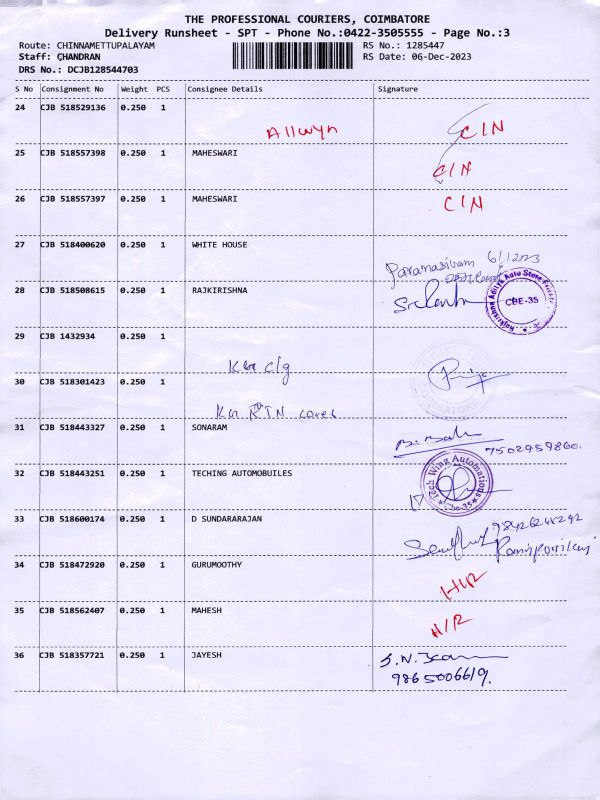 THE PROFESSIONAL COURIERS, COIMBATORE
Delivery Runsheet - SPT - Phone No.:0422-3505555 - Page No.:3
Route: CHINNAMETTUPALAYAM RS No.: 1285447
Staff: CHANDRAN RS Date: 06-Dec-2023
DRS No.: DCJB128544703
S No Consignment No Weight PCS Consignee Details Signature
24 CJB 518529136 0.250 1
Allwyn C/N
25 CJB 518557398 0.250 1 MAHESWARI
C/N
26 CJB 518557397 0.250 1 MAHESWARI C/N
27 CJB 518400620 0.250 1 WHITE HOUSE
Paramasivam 6/12023
28 CJB 518508615 0.250 1 RAJKIRISHNA
CBE-35
29 CJB 1432934 0.250 1
KG c/g
30 CJB 518301423 0.250 1
KG RTN cover
31 CJB 518443327 0.250 1 SONARAM
7502959860.
32 CJB 518443251 0.250 1 TECHING AUTOMOBUILES
Tech Wing Automations
Cbe-35
33 CJB 518600174 0.250 1 D SUNDARARAJAN
34 CJB 518472920 0.250 1 GURUMOOTHY
H/R
35 CJB 518562407 0.250 1 MAHESH
H/R
36 CJB 518357721 0.250 1 JAYESH
9865006619.